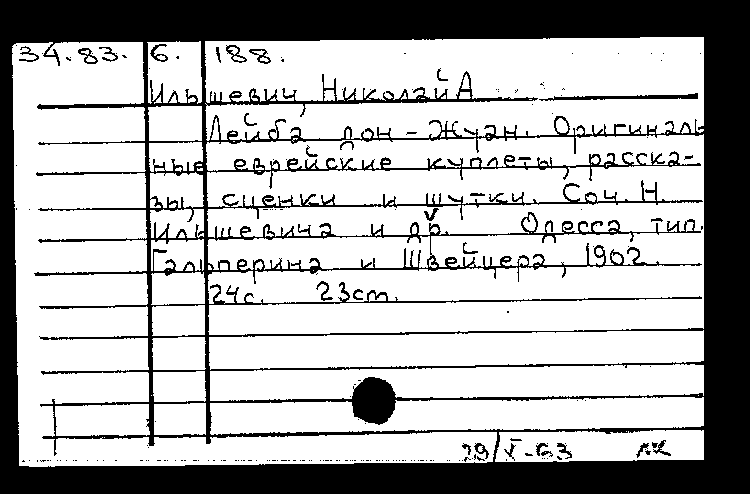 34.83. 6. 188.
Ильшевич, Николай А
Лейба дон-Жуан. Оригиналь
ные еврейские куплеты, расска-
зы, сценки и шутки. Соч. Н.
Ильшевича и др. Одесса, тип.
Гальперина и Швейцера, 1902.
24с. 23cm.
29/X-63 лк